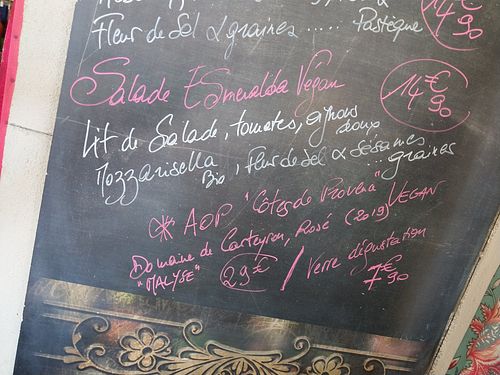 Fleur de Sel & graines ..... Pastèque
14€90
Salade Esmeralda Vegan
14€90
Lit de Salade, tomates, oignons doux
Mozzarisella Bio, Fleur de Sel & Sésames
... graines
* AOP "Côtes de Provence" VEGAN
Domaine de Carteyron, Rosé (2019)
"MALYSE" 29€ / Verre dégustation
7€90